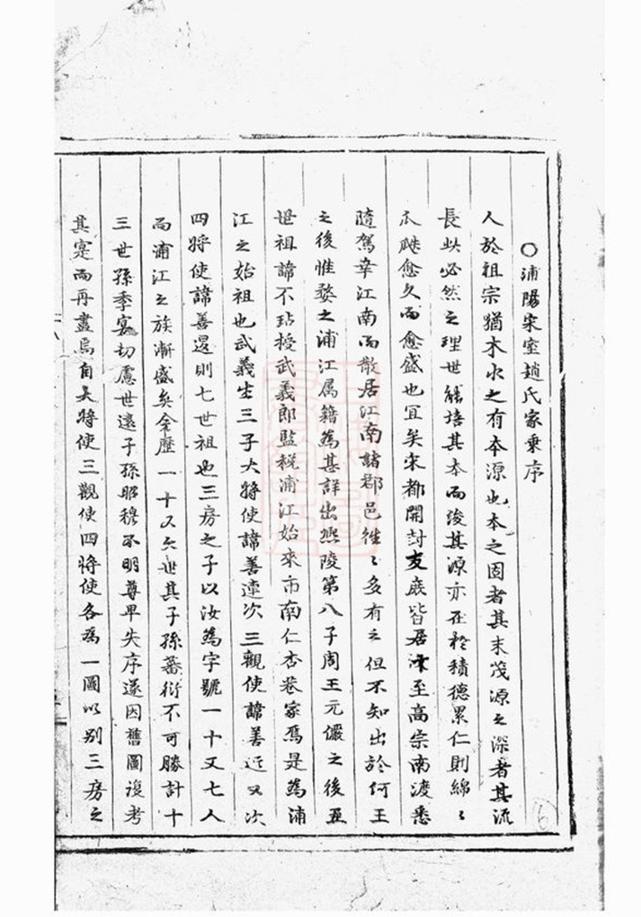 ○浦陽宋室趙氏家乘序
人於祖宗猶木水之有本源也本之固者其末茂源之深者其流
長此必然之理世能培其本而浚其源亦在於積德累仁則綿〻
瓜瓞愈久而愈盛也宜矣宋都開封支庶皆居汴至高宗南渡悉
隨駕幸江南而散居江南諸郡邑徃〻多有之但不知出於何王
之後惟婺之浦江属籍為甚詳出熈陵第八子周王元儼之後五
世祖諱不玷授武義郎監税浦江始來市南仁杏巷家焉是為浦
江之始祖也武義生三子大将使諱善逺次三觀使諱善近又次
四将使諱善還則七世祖也三房之子以汝為字號一十又七人
而浦江之族漸盛矣今歷一十又六世其子孫蕃衍不可勝計十
三世孫季宴切慮世逺子孫昭穆不明尊卑失序遂因舊圖復考
其寔而再畫焉自大将使三觀使四将使各為一圖以别三房之
6